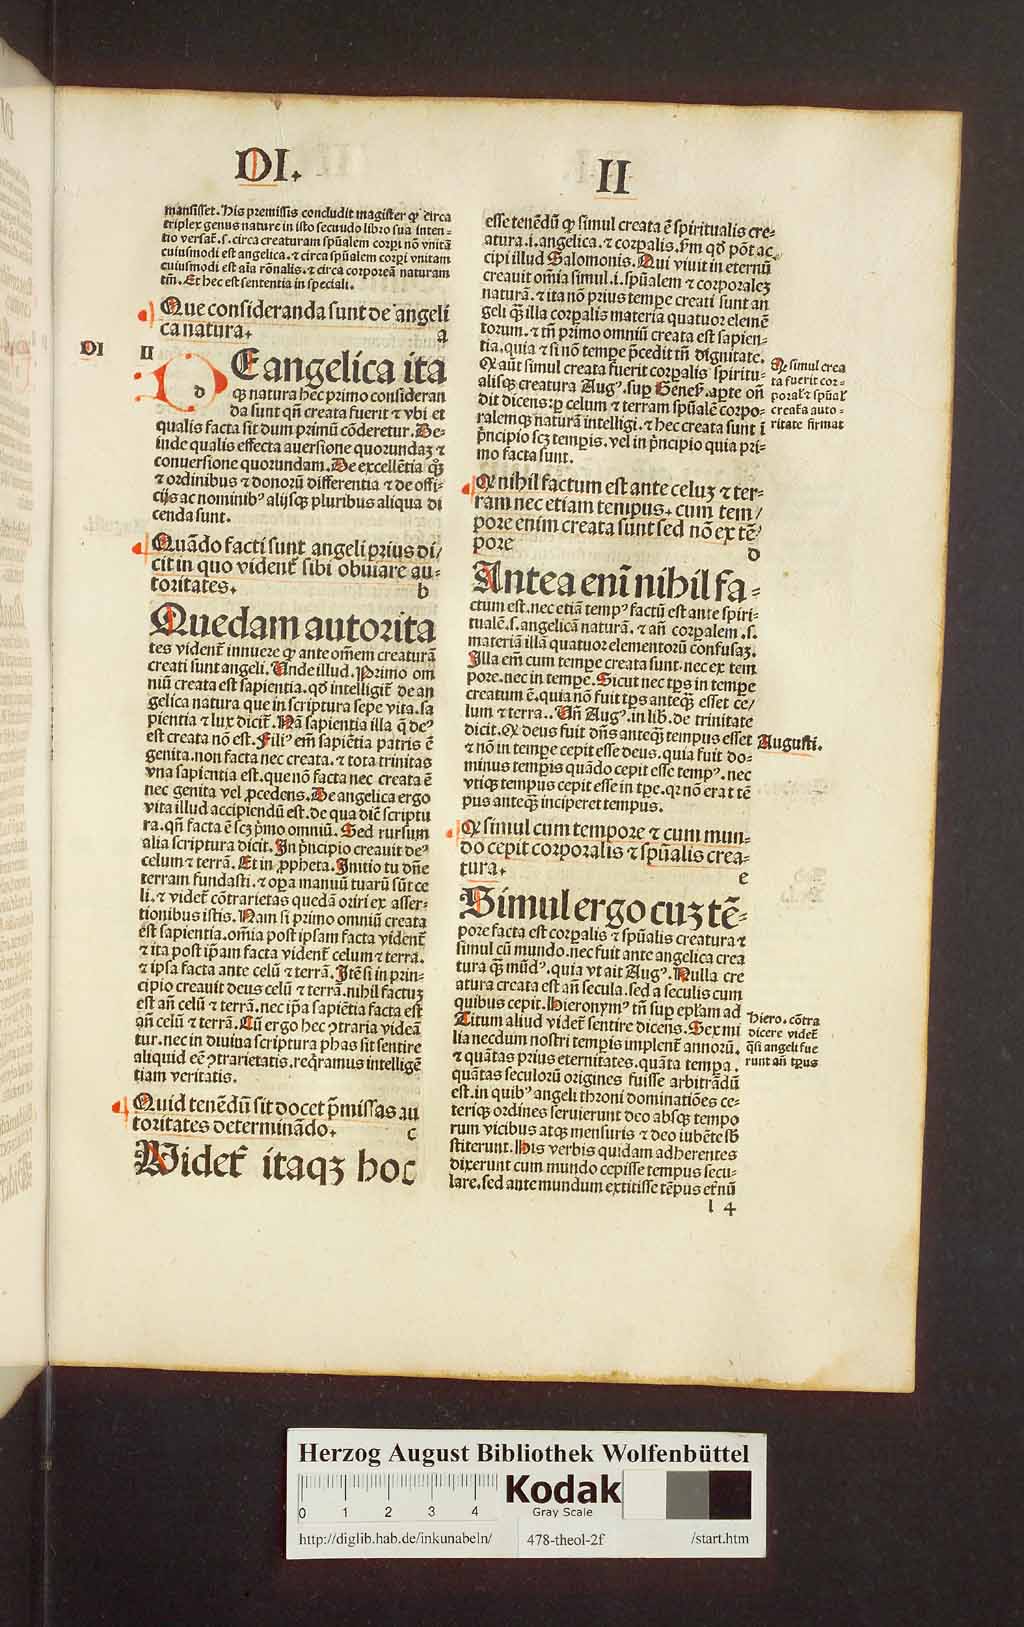 DI.
II
mansisset. His premissis concludit magister qꝫ circa
triplex genus nature in isto secundo libro sua inten-
tio versat̃. s. circa creaturam spũalem corpi nõ vnitã
cuiusmodi est angelica. ⁊ circa spũalem corpi vnitam
cuiusmodi est aĩa rõnalis. ⁊ circa corporeã naturam
tm̃. Et hec est sententia in speciali.
Que consideranda sunt de angeli
ca natura. a
DI II
d
DE angelica ita
qꝫ natura hec primo consideran
da sunt qñ creata fuerit ⁊ vbi et
qualis facta sit dum primũ cõderetur. De-
inde qualis effecta auersione quorundaꝫ ⁊
conuersione quorundam. De excellẽtia qꝫ
⁊ ordinibus ⁊ donorũ differentia ⁊ de offi-
cijs ac nominibꝰ alijsqꝫ pluribus aliqua di
cenda sunt.
Quãdo facti sunt angeli prius di/
cit in quo vident̃ sibi obuiare au-
toritates. b
Quedam autorita
tes vident̃ innuere qꝫ ante om̃em creaturã
creati sunt angeli. Unde illud. Primo om
niũ creata est sapientia. qđ intelligit̃ de an
gelica natura que in scriptura sepe vita. sa
pientia ⁊ lux dicit̃. Nã sapientia illa q̃ deꝰ
est creata nõ est. Filiꝰ em̃ sapiẽtia patris ẽ
genita. non facta nec creata. ⁊ tota trinitas
vna sapientia est. que nõ facta nec creata ẽ
nec genita vel ꝓcedens. De angelica ergo
vita illud accipiendũ est. de qua dic̃ scriptu
ra. qñ facta ẽ scꝫ p̃mo omniũ. Sed rursum
alia scriptura dicit. In p̃ncipio creauit deꝰ
celum ⁊ terrã. Et in ꝓpheta. Initio tu dñe
terram fundasti. ⁊ opera manuũ tuarũ sũt ce
li. ⁊ videt̃ cõtrarietas quedã oriri ex asser-
tionibus istis. Nam si primo omniũ creata
est sapientia. om̃ia post ipsam facta vident̃
⁊ ita post ip̃am facta vident̃ celum ⁊ terra.
⁊ ipsa facta ante celũ ⁊ terrã. Itẽ si in prin-
cipio creauit deus celũ ⁊ terrã. nihil factuꝫ
est añ celũ ⁊ terrã. nec ip̃a sapiẽtia facta est
añ celũ ⁊ terrã. Cũ ergo hec ꝯtraria videã
tur. nec in diuina scriptura phas sit sentire
aliquid eẽ ꝯtrarietatis. req̃ramus intelligẽ
tiam veritatis.
Quid tenẽdũ sit docet p̃missas au
toritates determinãdo. c
Videt̃ itaqꝫ hoc
esse tenẽdũ qꝫ simul creata ẽ spiritualis cre-
atura. i. angelica. ⁊ corpalis. p̃m qđ põt ac
cipi illud Salomonis. Qui viuit in eternũ
creauit om̃ia simul. i. spũalem ⁊ corporaleꝫ
naturã. ⁊ ita nõ prius tempe creati sunt an
geli q̃ꝫ illa corpalis materia quatuor elemẽ
torum. ⁊ tñ primo omniũ creata est sapien-
tia. quia ⁊ si nõ tempe p̃cedit tñ dignitate.
Qꝫ aũt simul creata fuerit corpalis spiritu-
alisqꝫ creatura Augꝰ. sup Genes̃. apte oñ
dit dicens: p celum ⁊ terram spũalẽ corpo-
ralemqꝫ naturã intelligi. ⁊ hec creata sunt ĩ
p̃ncipio scꝫ tempis. vel in p̃ncipio quia pri-
mo facta sunt.
Qꝫ simul crea
ta fuerit cor-
poral̃ ⁊ spũal̃
creat̃a auto-
ritate firmat
Qꝫ nihil factum est ante celuꝫ ⁊ ter-
ram nec etiam tempus. cum tem/
pore enim creata sunt sed nõ ex tẽ/
pore d
Antea enĩ nihil fa-
ctum est. nec etiã tempꝰ factũ est ante spiri-
tualẽ. s. angelicã naturã. ⁊ añ corpalem. s.
materiã illã quatuor elementorũ confusaꝫ.
Illa em̃ cum tempe creata sunt. nec ex tem
pore. nec in tempe. Sicut nec tp̃s in tempe
creatum ẽ. quia nõ fuit tp̃s anteqꝫ esset ce/
lum ⁊ terra. Uñ Augꝰ. in lib. de trinitate
dicit. Qꝫ deus fuit dñs anteqꝫ tempus esset
⁊ nõ in tempe cepit esse deus. quia fuit do-
minus tempis quãdo cepit esse tempꝰ. nec
vtiqꝫ tempus cepit esse in tpe. qꝛ nõ erat tẽ
pus anteqꝫ inciperet tempus.
Augusti.
Qꝫ simul cum tempore ⁊ cum mun-
do cepit corporalis ⁊ spũalis crea-
tura. e
Simul ergo cuꝫ tẽ-
pore facta est corpalis ⁊ spũalis creatura ⁊
simul cũ mundo. nec fuit ante angelica crea
tura q̃ꝫ mũdꝰ. quia vt ait Augꝰ. Nulla cre
atura creata est añ secula. sed a seculis cum
quibus cepit. Hieronymꝰ tñ sup epl̃am ad
Titum aliud videt̃ sentire dicens. Sex mi
lia necdum nostri tempis implent̃ annorũ.
⁊ quãtas prius eternitates. quãta tempa.
quãtas seculorũ origines fuisse arbitrãdũ
est. in quibꝰ angeli throni dominatiões ce-
teriqꝫ ordines seruierunt deo absqꝫ tempo
rum vicibus atqꝫ mensuris ⁊ deo iubẽte sb̃
stiterunt. His verbis quidam adherentes
dixerunt cum mundo cepisse tempus secu-
lare. sed ante mundum extitisse tẽpus et̃nũ
Hiero. cõtra
dicere videt̃
qñ angeli fue
runt añ tp̃us
l 4
Herzog August Bibliothek Wolfenbüttel
0 1 2 3 4
Kodak
Gray Scale
http://diglib.hab.de/inkunabeln/ 478-theol-2f /start.htm